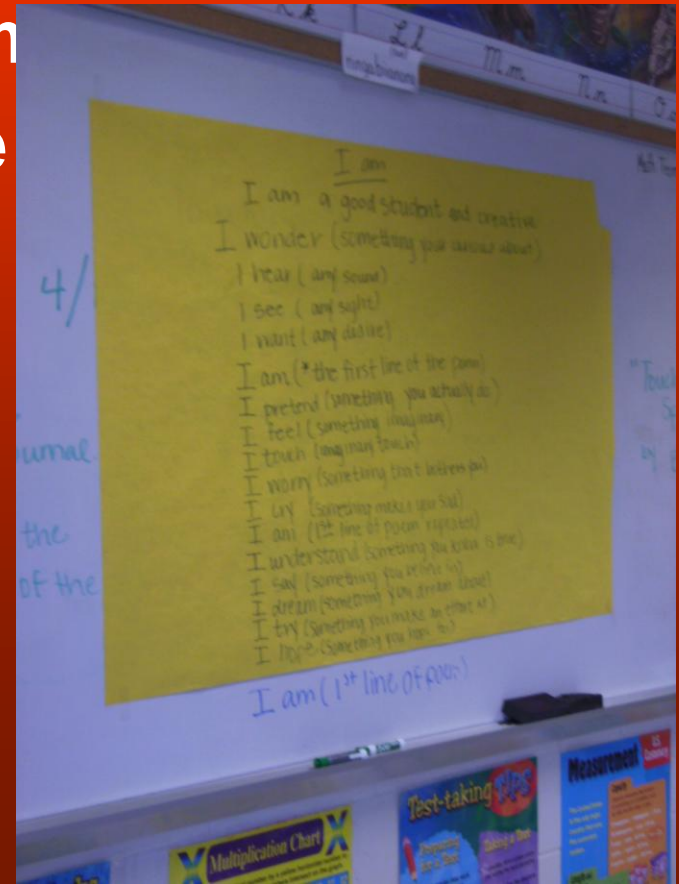 n
e
Kk
Ll
Mm
Nn
O
I am
I am a good student and creative
I wonder (something your curious about)
I hear (any sound)
I see (any sight)
I want (any desire)
I am (* the first line of the poem)
I pretend (something you actually do)
I feel (something imaginary)
I touch (imaginary touch)
I worry (something that bothers you)
I cry (something makes your sad)
I am (1st line of poem repeated)
I understand (something you know is true)
I say (something you believe in)
I dream (something you dream about)
I try (something you make an effort at)
I hope (something you hope to)
I am (1st line of poem)
4/
urnal
the
of the
"Touch
Sp
by
Math
Multiplication Chart
Test-taking Tips
Preparing for a Test
Taking a Test
Measurement
U.S.